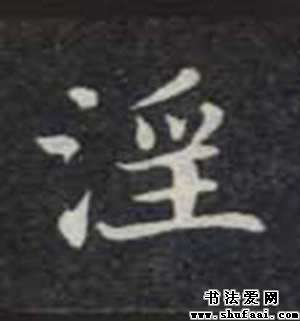 淫
书法爱网
www.shufaai.com